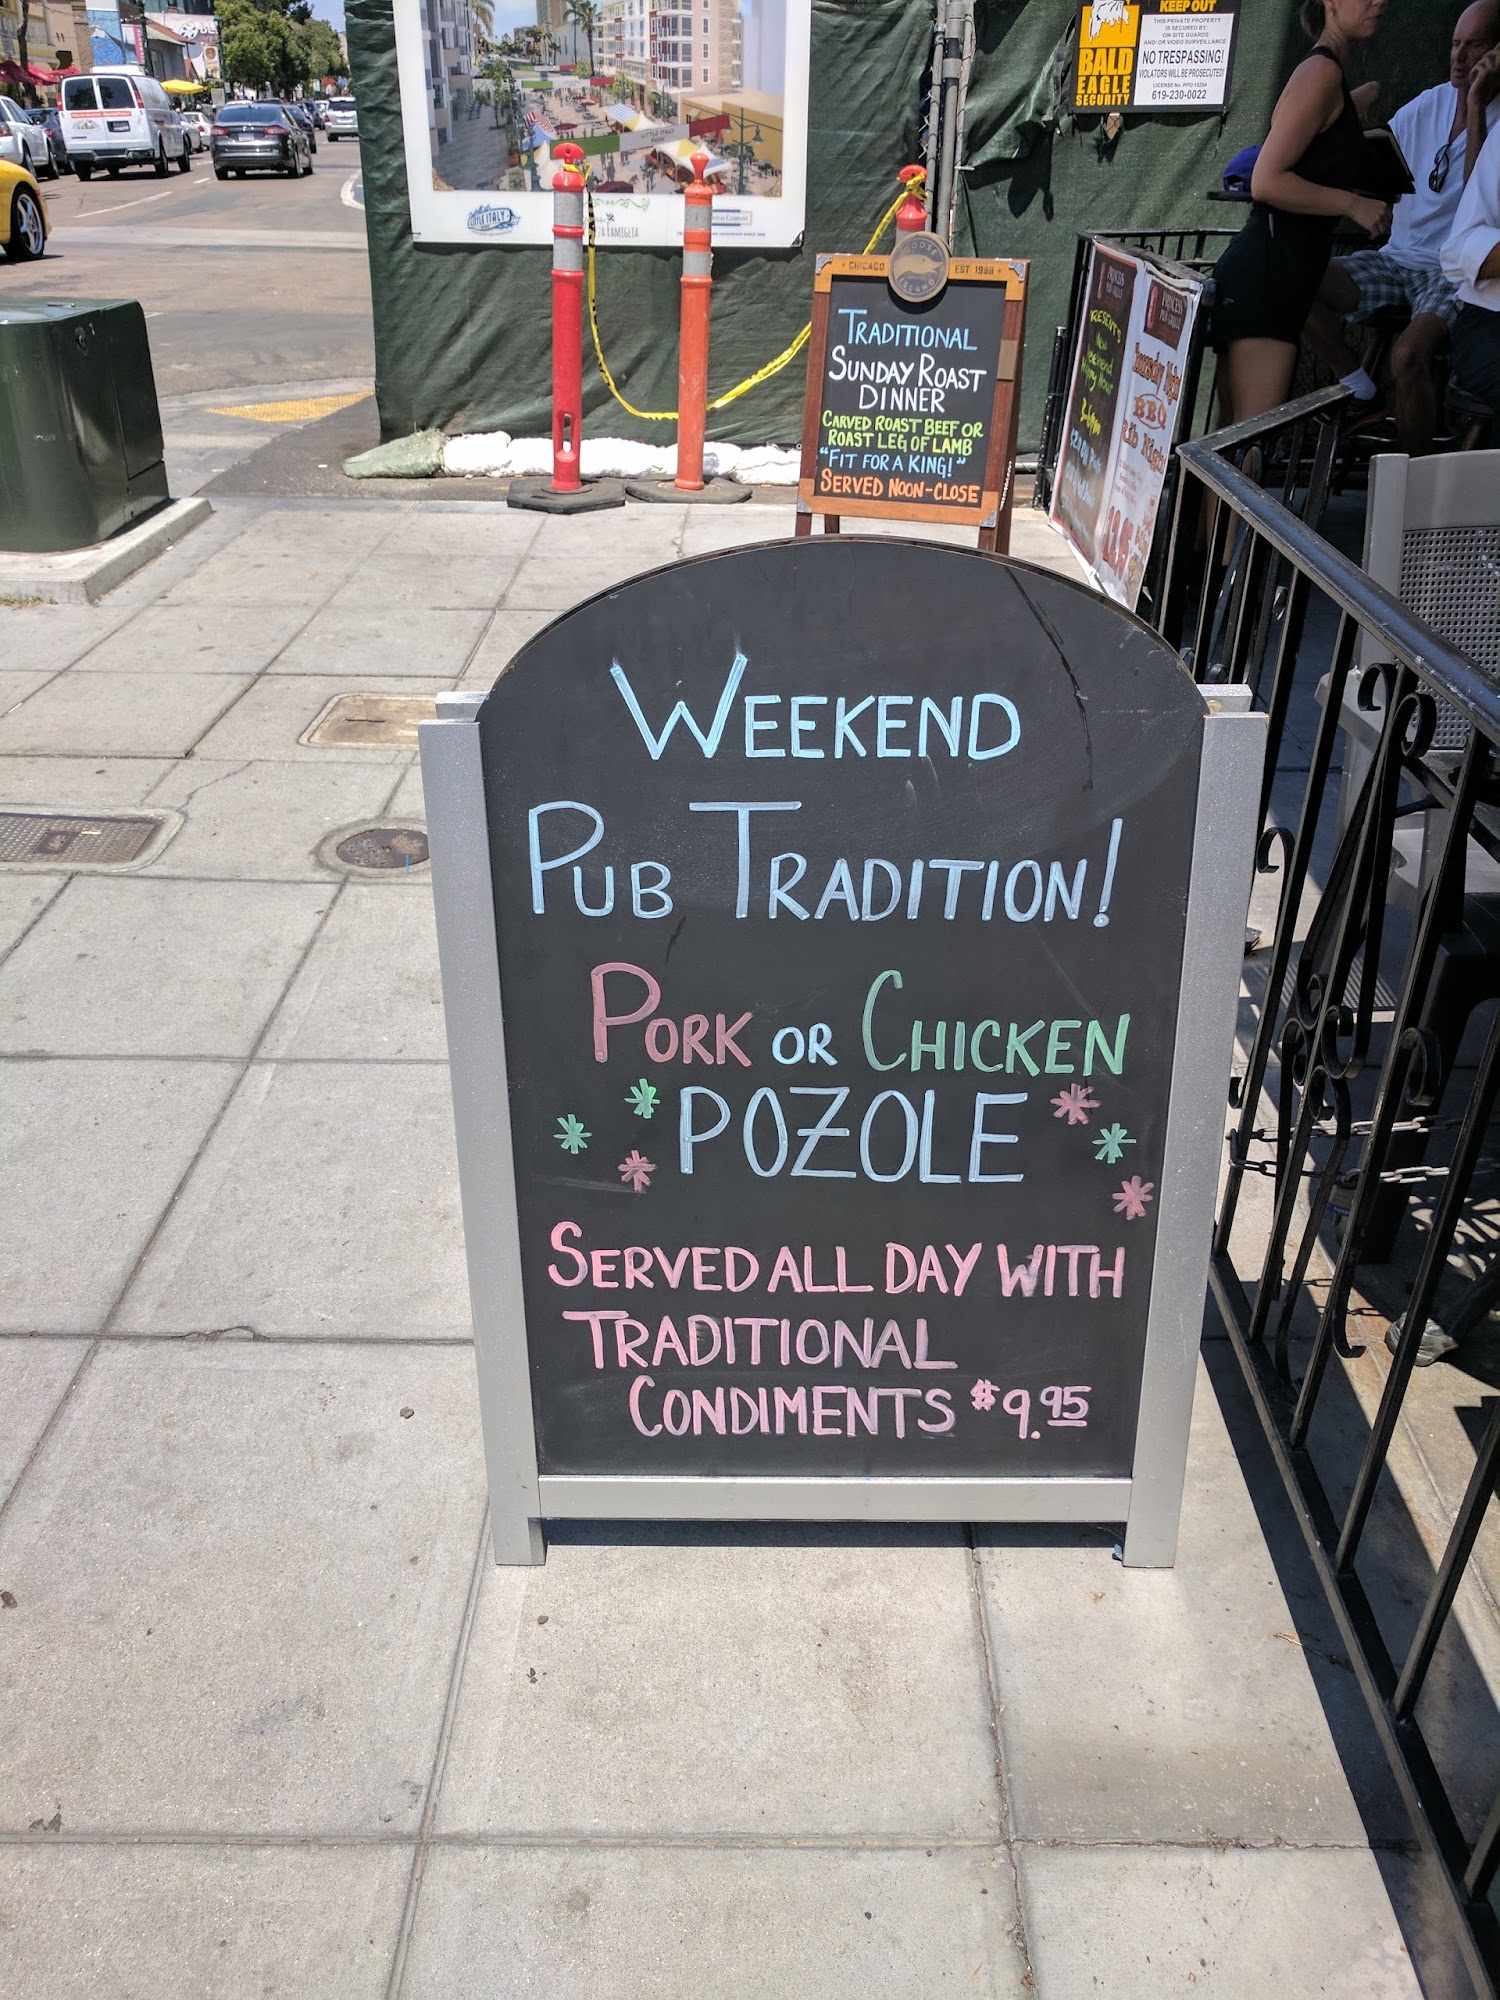 WEEKEND
PUB TRADITION!
PORK OR CHICKEN
POZOLE
SERVED ALL DAY WITH
TRADITIONAL
CONDIMENTS $9.95
CHICAGO
GOOSE
ISLAND
EST 1988
TRADITIONAL
SUNDAY ROAST
DINNER
CARVED ROAST BEEF OR
ROAST LEG OF LAMB
"FIT FOR A KING!"
SERVED NOON-CLOSE
KEEP OUT
THIS PRIVATE PROPERTY
IS SECURED BY
ON-SITE GUARDS
AND/OR VIDEO SURVEILLANCE
NO TRESPASSING!
VIOLATORS WILL BE PROSECUTED!
619-230-0022
BALD
EAGLE
SECURITY
LITTLE ITALY
FAMIGLIA
PRINCESS
PUB GRILLE
BBQ
Rib Night